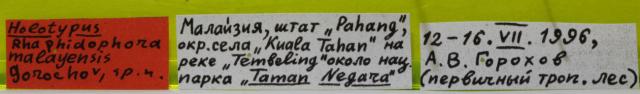 Holotypus
Rhaphidophora
malayensis
gorochov, sp.n.
Малайзия, штат „Pahang",
окр.села „Kuala Tahan" на
реке „Tembeling" около нац.
парка „Taman Negara"
12-16. VII. 1996,
А.В. Горохов
(первичный троп. лес)